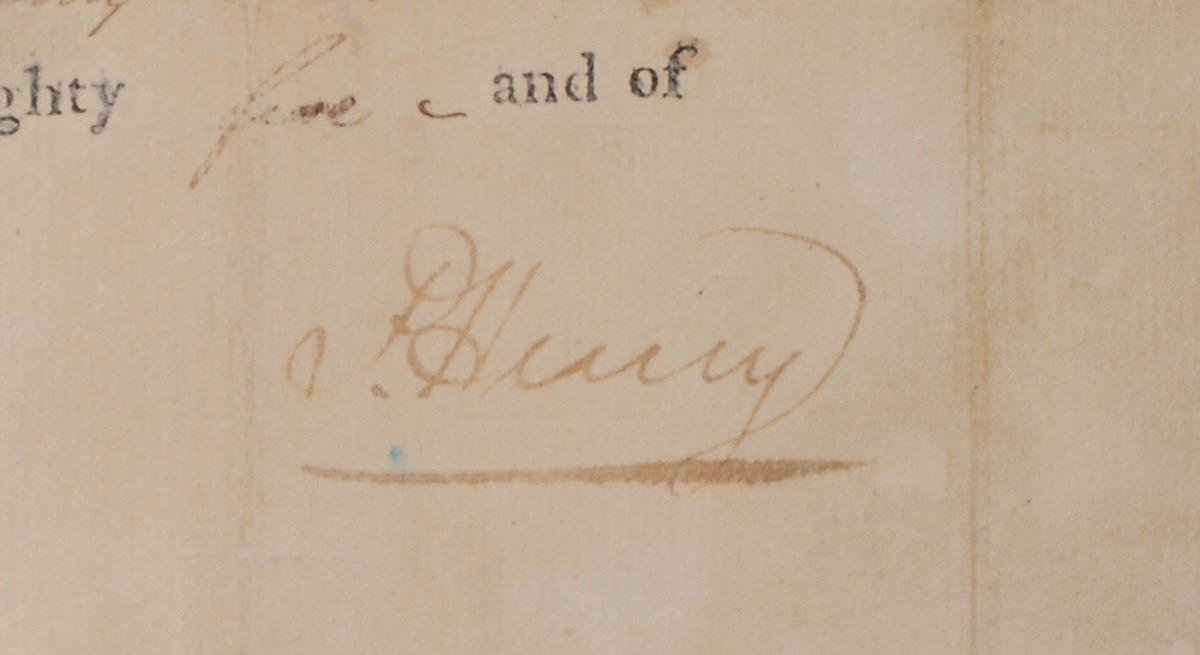 ghty five and of
P. Henry